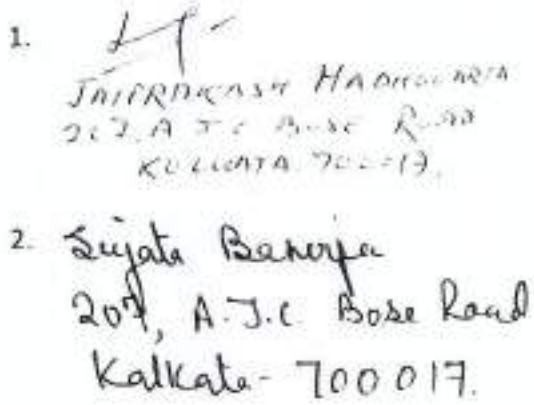 1.
JAIPRAKASH
207. A J C BOSE ROAD
KOLKATA. 700017.
2. Sujata Banerjee
207, A.J.C. Bose Road
Kalkata- 700017.